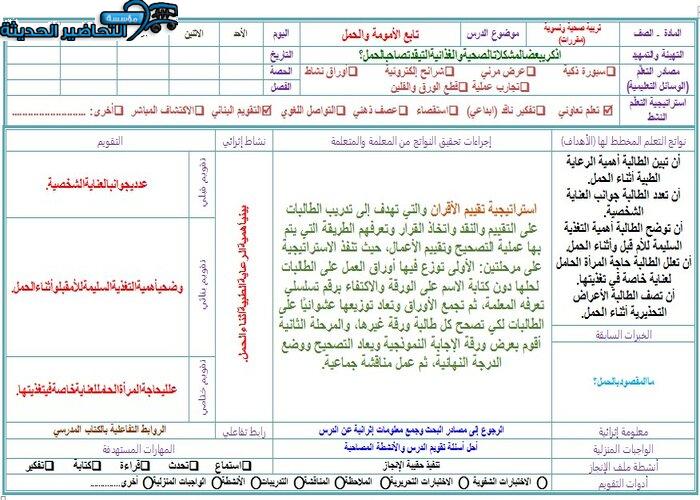 مؤسسة
التحاضير الحديثة
المادة - الصف
تربية صحية ونسوية
(مقررات)
موضوع الدرس
تابع الأمومة والحمل
اليوم
الأحد
الاثنين
التهيئة والتمهيد
اذكري بعض المشكلات الصحية والغذائية التي قد تصاحب الحمل؟
التاريخ
مصادر التعلم
(الوسائل التعليمية)
سبورة ذكية
عرض مرئي
شرائح إلكترونية
أوراق نشاط
تجارب عملية
قطع الورق والفلين
الحصة
الفصل
استراتيجية التعلم
النشط
تعلم تعاوني
تفكير ناقد (إبداعي)
استقصاء
عصف ذهني
التواصل اللغوي
التقويم البنائي
الاكتشاف المباشر
أخرى: ..........................
نواتج التعلم المخطط لها (الأهداف)
إجراءات تحقيق النواتج من المعلمة والمتعلمة
نشاط إثرائي
التقويم
أن تبين الطالبة أهمية الرعاية
الطبية أثناء الحمل.
أن تعدد الطالبة جوانب العناية
الشخصية.
أن توضح الطالبة أهمية التغذية
السليمة للأم قبل وأثناء الحمل.
أن تعلل الطالبة حاجة المرأة الحامل
لعناية خاصة في تغذيتها.
أن تصف الطالبة الأعراض
التحذيرية أثناء الحمل.
الخبرات السابقة
ما المقصود بالحمل؟
استراتيجية تقييم الأقران والتي تهدف إلى تدريب الطالبات
على التقييم والنقد واتخاذ القرار وتعرفهم الطريقة التي يتم
بها عملية التصحيح وتقييم الأعمال، حيث تنفذ الاستراتيجية
على مرحلتين: الأولى توزع فيها أوراق العمل على الطالبات
لحلها دون كتابة الاسم على الورقة والاكتفاء برقم تسلسلي
تعرفه المعلمة، ثم تجمع الأوراق وتعاد توزيعها عشوائيًا على
الطالبات لكي تصحح كل طالبة ورقة غيرها، والمرحلة الثانية
أقوم بعرض ورقة الإجابة النموذجية ويعاد التصحيح ووضع
الدرجة النهائية، ثم عمل مناقشة جماعية.
بيني أهمية الرعاية الطبية أثناء الحمل.
تقويم قبلي
عددي جوانب العناية الشخصية.
تقويم بنائي
وضحي أهمية التغذية السليمة للأم قبل وأثناء الحمل.
تقويم ختامي
عللي حاجة المرأة الحامل للعناية خاصة في تغذيتها.
معلومة إثرائية
الرجوع إلى مصادر البحث وجمع معلومات إثرائية عن الدرس
رابط تفاعلي
الروابط التفاعلية بالكتاب المدرسي
الواجبات المنزلية
أحل أسئلة تقويم الدرس والأنشطة المصاحبة
المهارات المستهدفة
أنشطة ملف الإنجاز
تنفيذ حقيبة الإنجاز
استماع
تحدث
قراءة
كتابة
تفكير
أدوات التقويم
الاختبارات الشفوية
الاختبارات التحريرية
الملاحظة
المناقشة
التدريبات
الأنشطة
الواجبات المنزلية
أخرى........